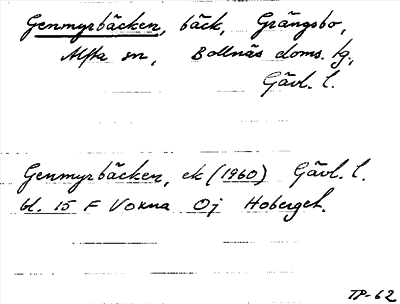 Genmyrbäcken, bäck, Grängsbo,
Alfta sn, Bollnäs doms. tg,
Gävl. l.
Genmyrbäcken, ek (1960) Gävl. l.
bl. 15 F Voxna Öj Hoberget.
TP-62